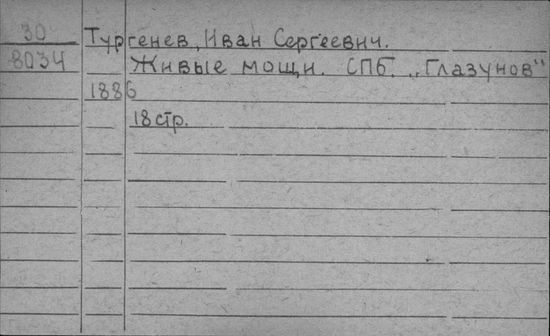 30 Тургенев, Иван Сергеевич.
8034 Живые мощи. СПб. „Глазунов"
1886
18 стр.